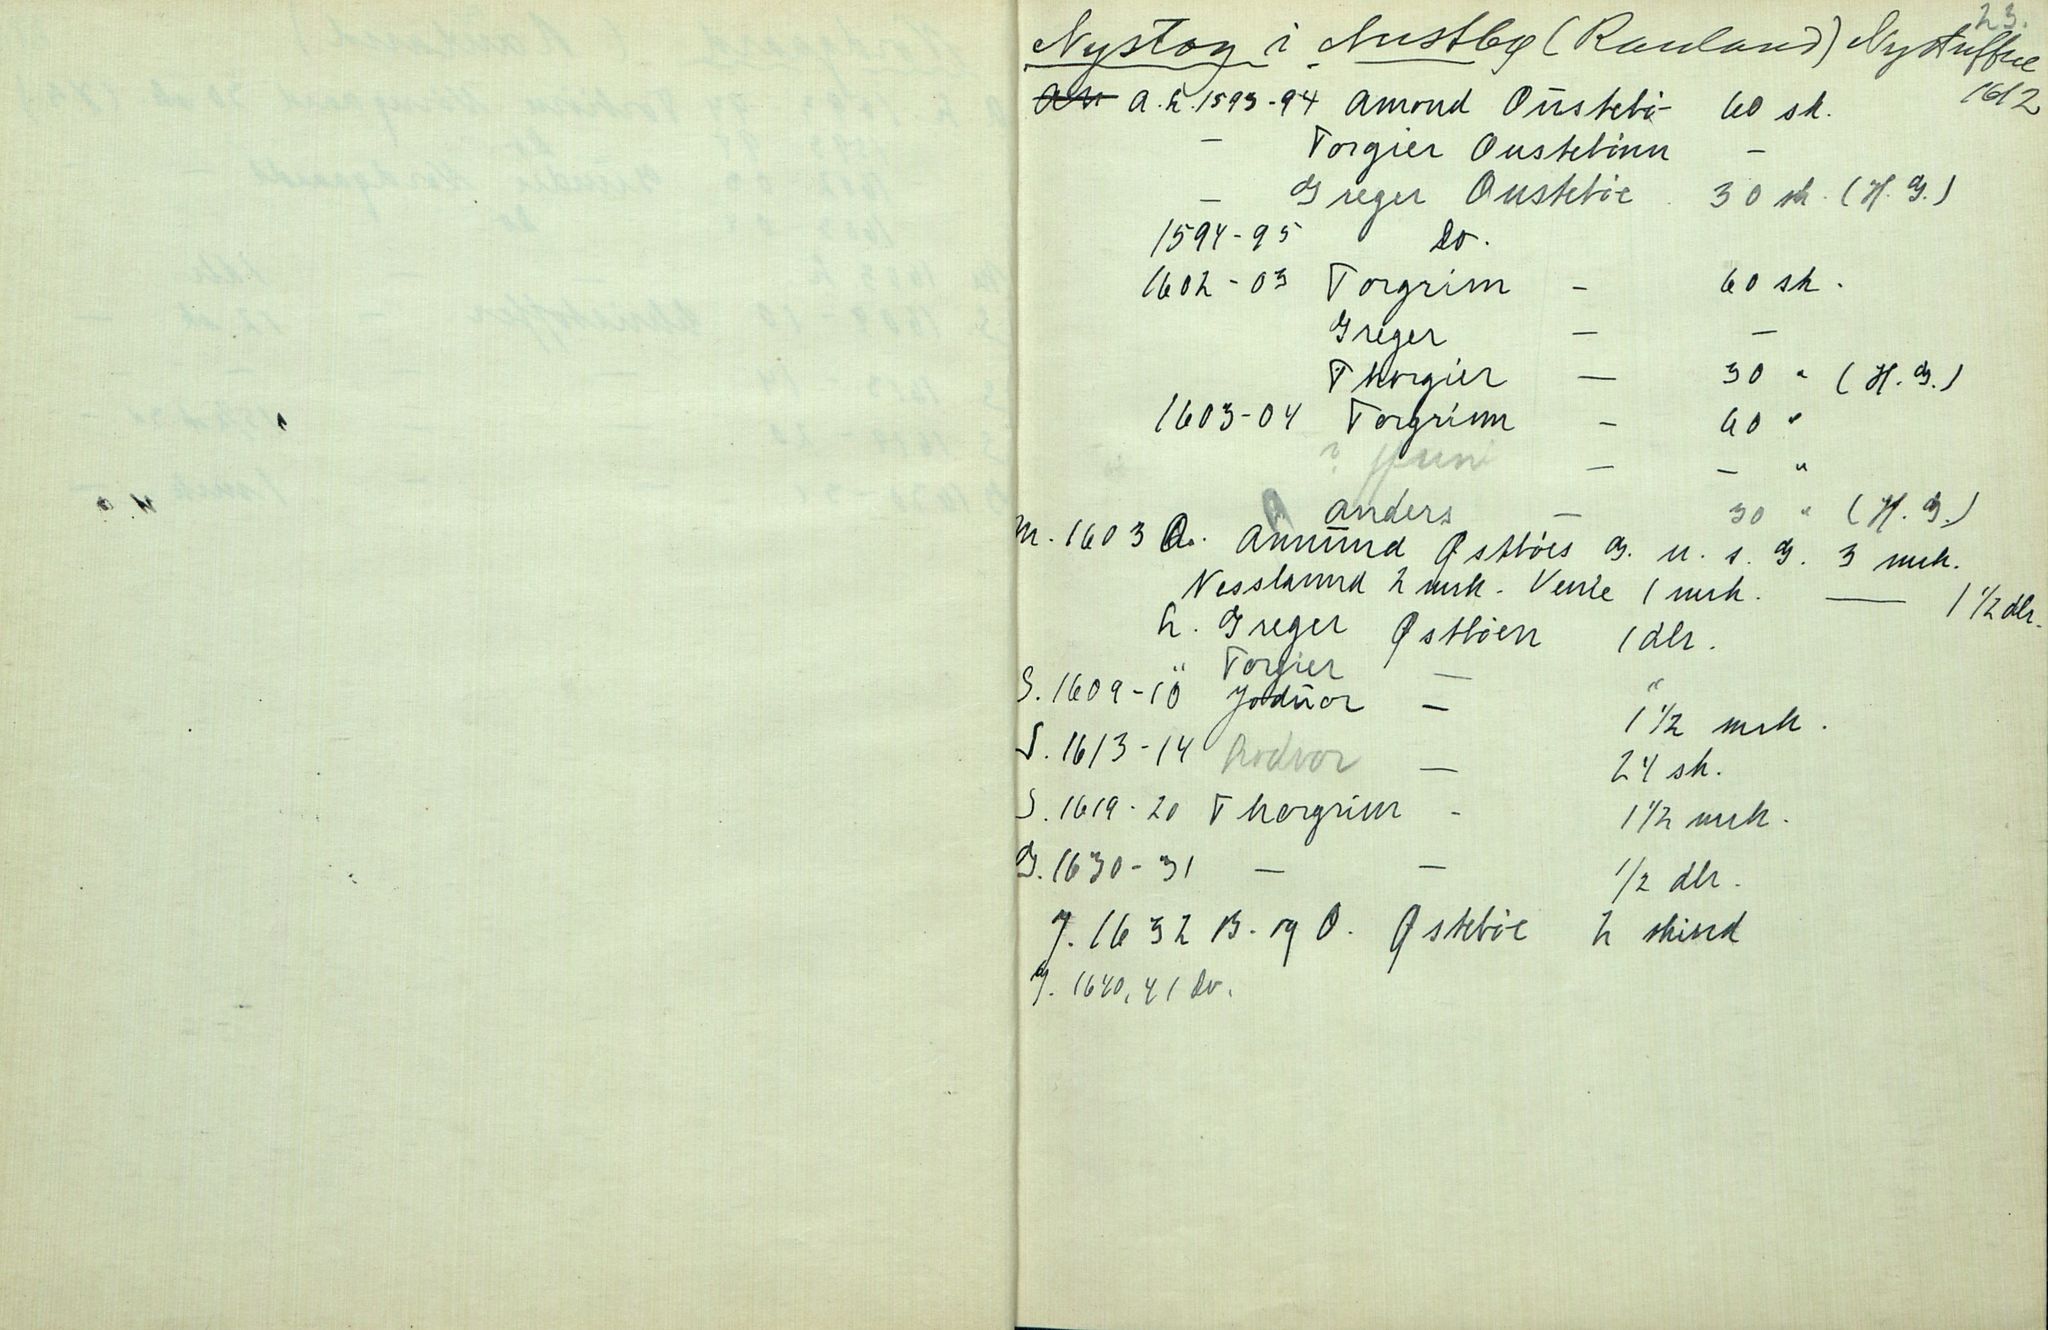 23.
Nystog i Austbø (Rauland) Nystuffue
1612
A.L. 1593-94 Amond Oüstebø 60 sk.
— Torgier Oustebönn —
— Greger Ousteböe 30 sk. (H.G.)
1594-95 Do.
1602-03 Torgrim — 60 sk.
Greger — —
Thorgier — 30 " (H.G.)
1603-04 Torgrimm — 60 "
? Juni — — "
Anders — 30 " (H.G.)
M. 1603 O. Amünd Østböes G. u. s. G. 3 mrk.
Nesslannd 2 mrk. Venie 1 mrk. — 1 1/2 dlr.
L. Greger Østböen 1 dlr.
" Torgier — "
S. 1609-10 Jodüor — 1 1/2 mrk.
S. 1613-14 hodvor — 24 sk.
S. 1619-20 Thorgrim - 1 1/2 mrk.
G. 1630-31 — — 1/2 dlr.
J. 1632 B. og O. Østeböe 2 skind
J. 1640, 41 Do.